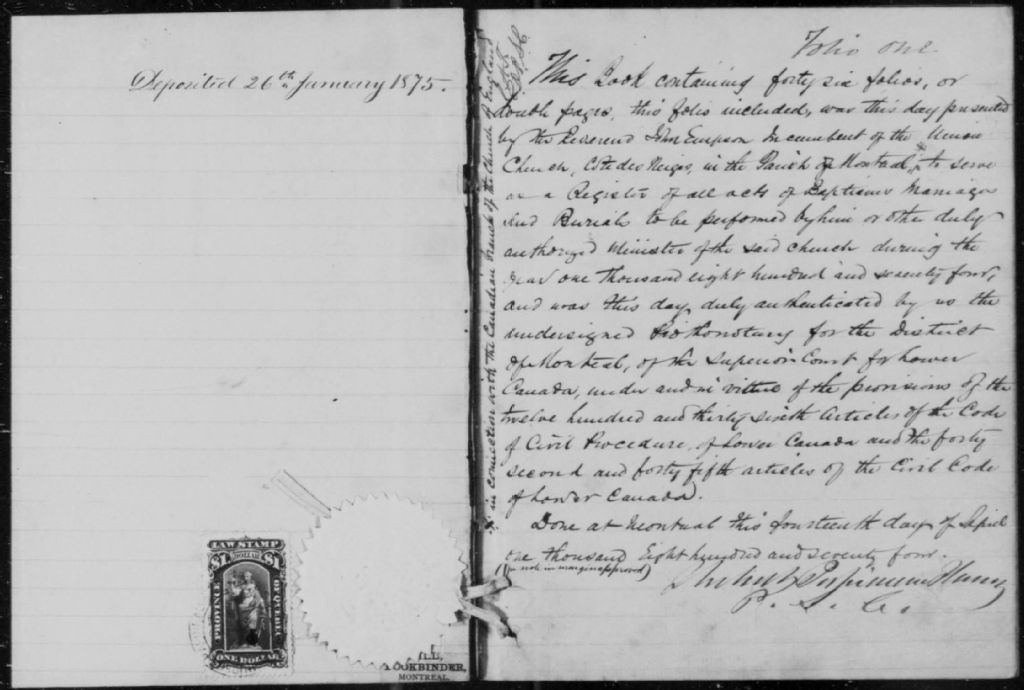 Deposited 26th January 1875.
LAW STAMP
$1 DOLLAR $1
PROVINCE OF QUEBEC
ONE DOLLAR
BOOKBINDER,
MONTREAL.
in connection with the Canadian Branch of the Church of England
Folio one
This Book containing forty six folios, or
double pages, this folio included, was this day presented
by the Reverend John Empson Incumbent of the Union
Church, Côte des Neiges, in the Parish of Montreal, to serve
as a Register of all acts of Baptisms Marriages
and Burials to be performed by him or other duly
authorized Minister of the said church during the
year one thousand eight hundred and seventy four,
and was this day, duly authenticated by us the
undersigned Prothonotary for the District
of Montreal, of the Superior Court for Lower
Canada, under and in virtue of the provisions of the
twelve hundred and thirty sixth Articles of the Code
of Civil Procedure, of Lower Canada and the forty
second and forty fifth articles of the Civil Code
of Lower Canada.
Done at Montreal this fourteenth day of April
one thousand Eight hundred and seventy four.
note in margin approved)
Hubert Papineau Honey
P. S. C.